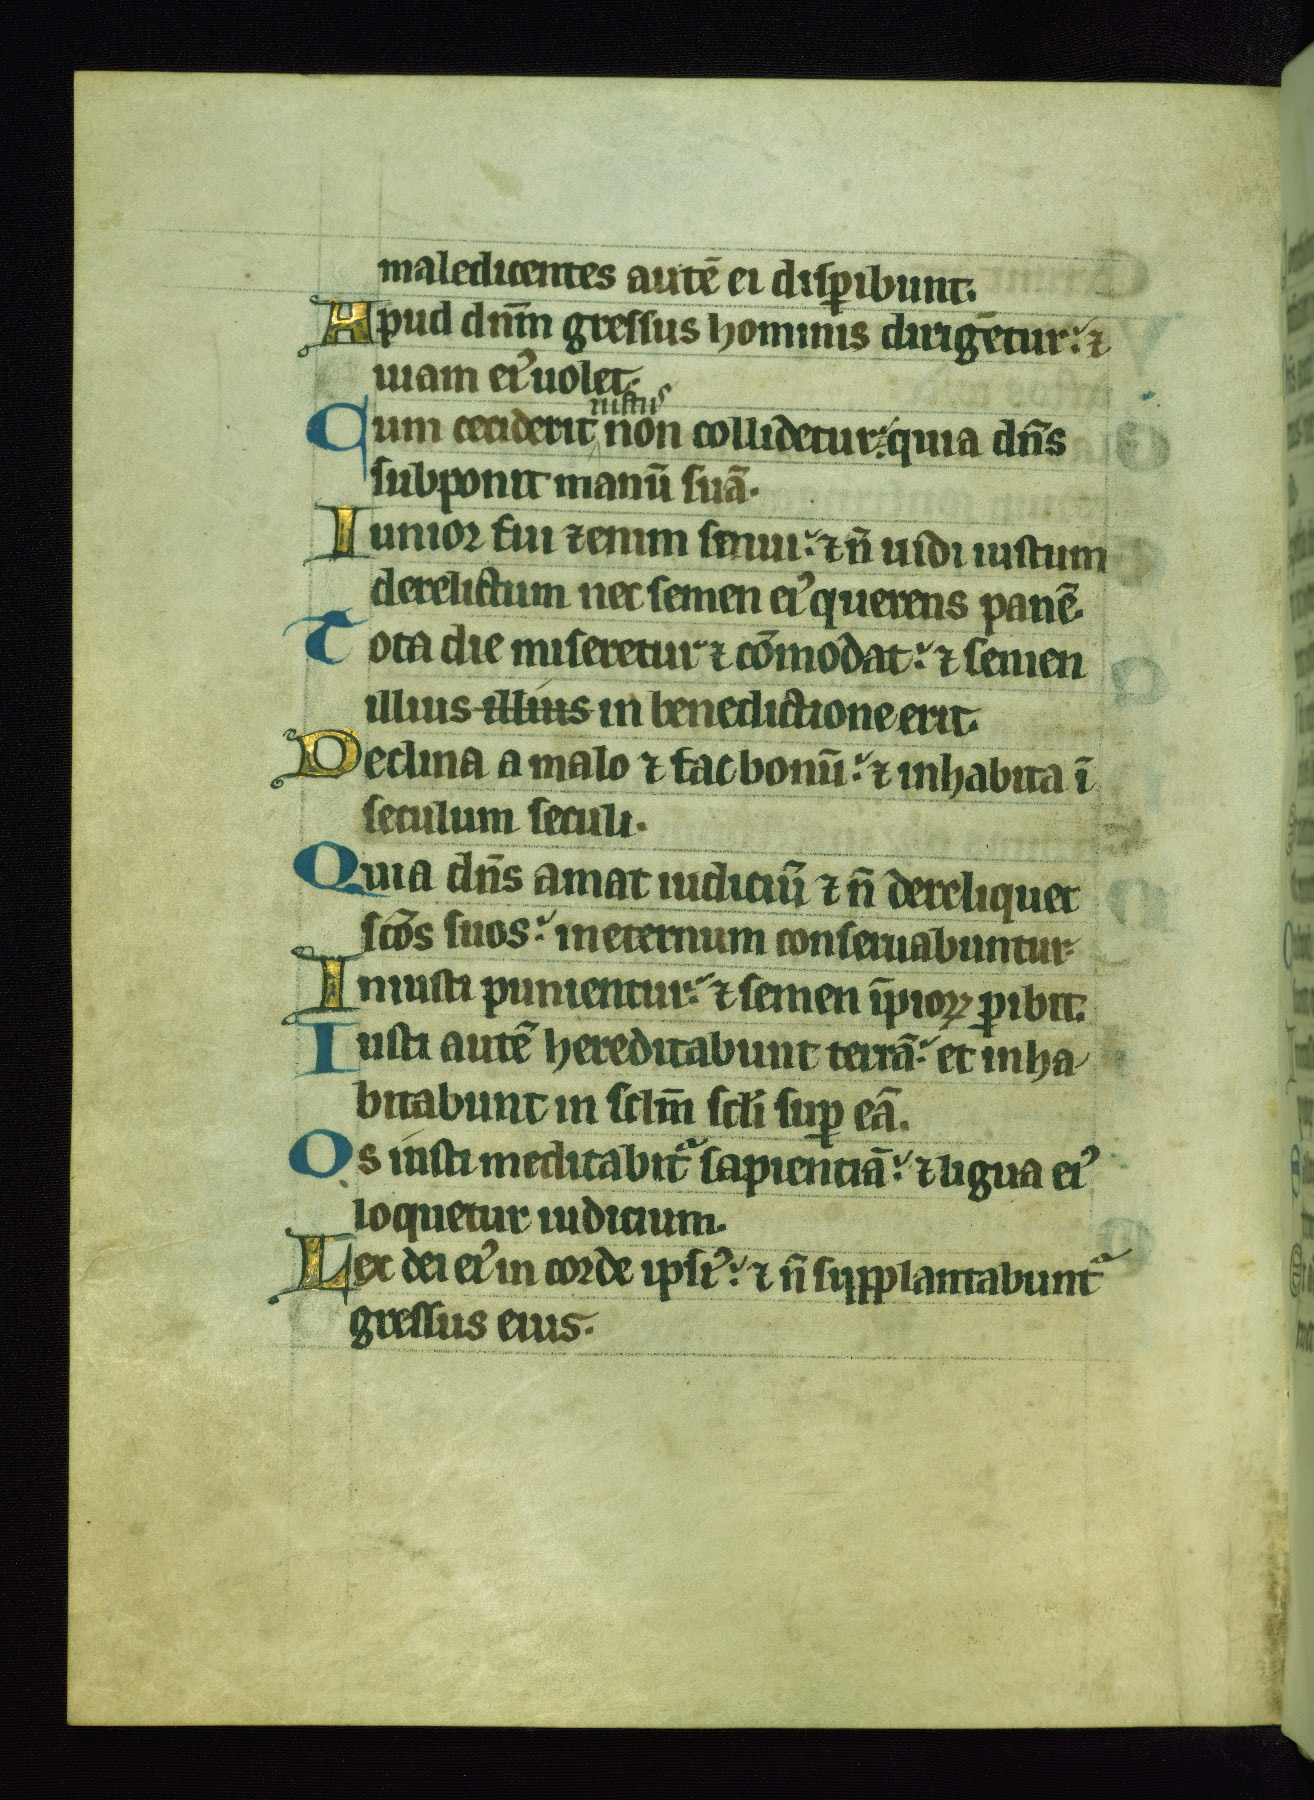 maledicentes autē ei disꝑibunt.
Apud dn̄m gressus hominis dirigētur: ⁊
uiam eiꝰ uolet.
iustus
Cum ceciderit non collidetur: quia dn̄s
subponit manū suā.
Iunior fui ⁊enim senui: ⁊ n̄ uidi iustum
derelictum nec semen eiꝰ querens panē.
Tota die miseretur ⁊ cōmodat: ⁊ semen
illius illius in benedictione erit.
Declina a malo ⁊ fac bonū: ⁊ inhabita ī
seculum seculi.
Quia dn̄s amat iudiciū ⁊ n̄ dereliquet
sc̄os suos: in eternum conseruabuntur
Iniusti punientur: ⁊ semen īpioꝝ ꝑibit.
Iusti autē hereditabunt terrā: et inha
bitabunt in sclm̄ scłi suꝑ eā.
Os iusti meditabit᷑ sapientiā: ⁊ ligua eiꝰ
loquetur iudicium.
Lex dei eiꝰ in corde ipsiꝰ: ⁊ n̄ supplantabunt᷑
gressus eius.